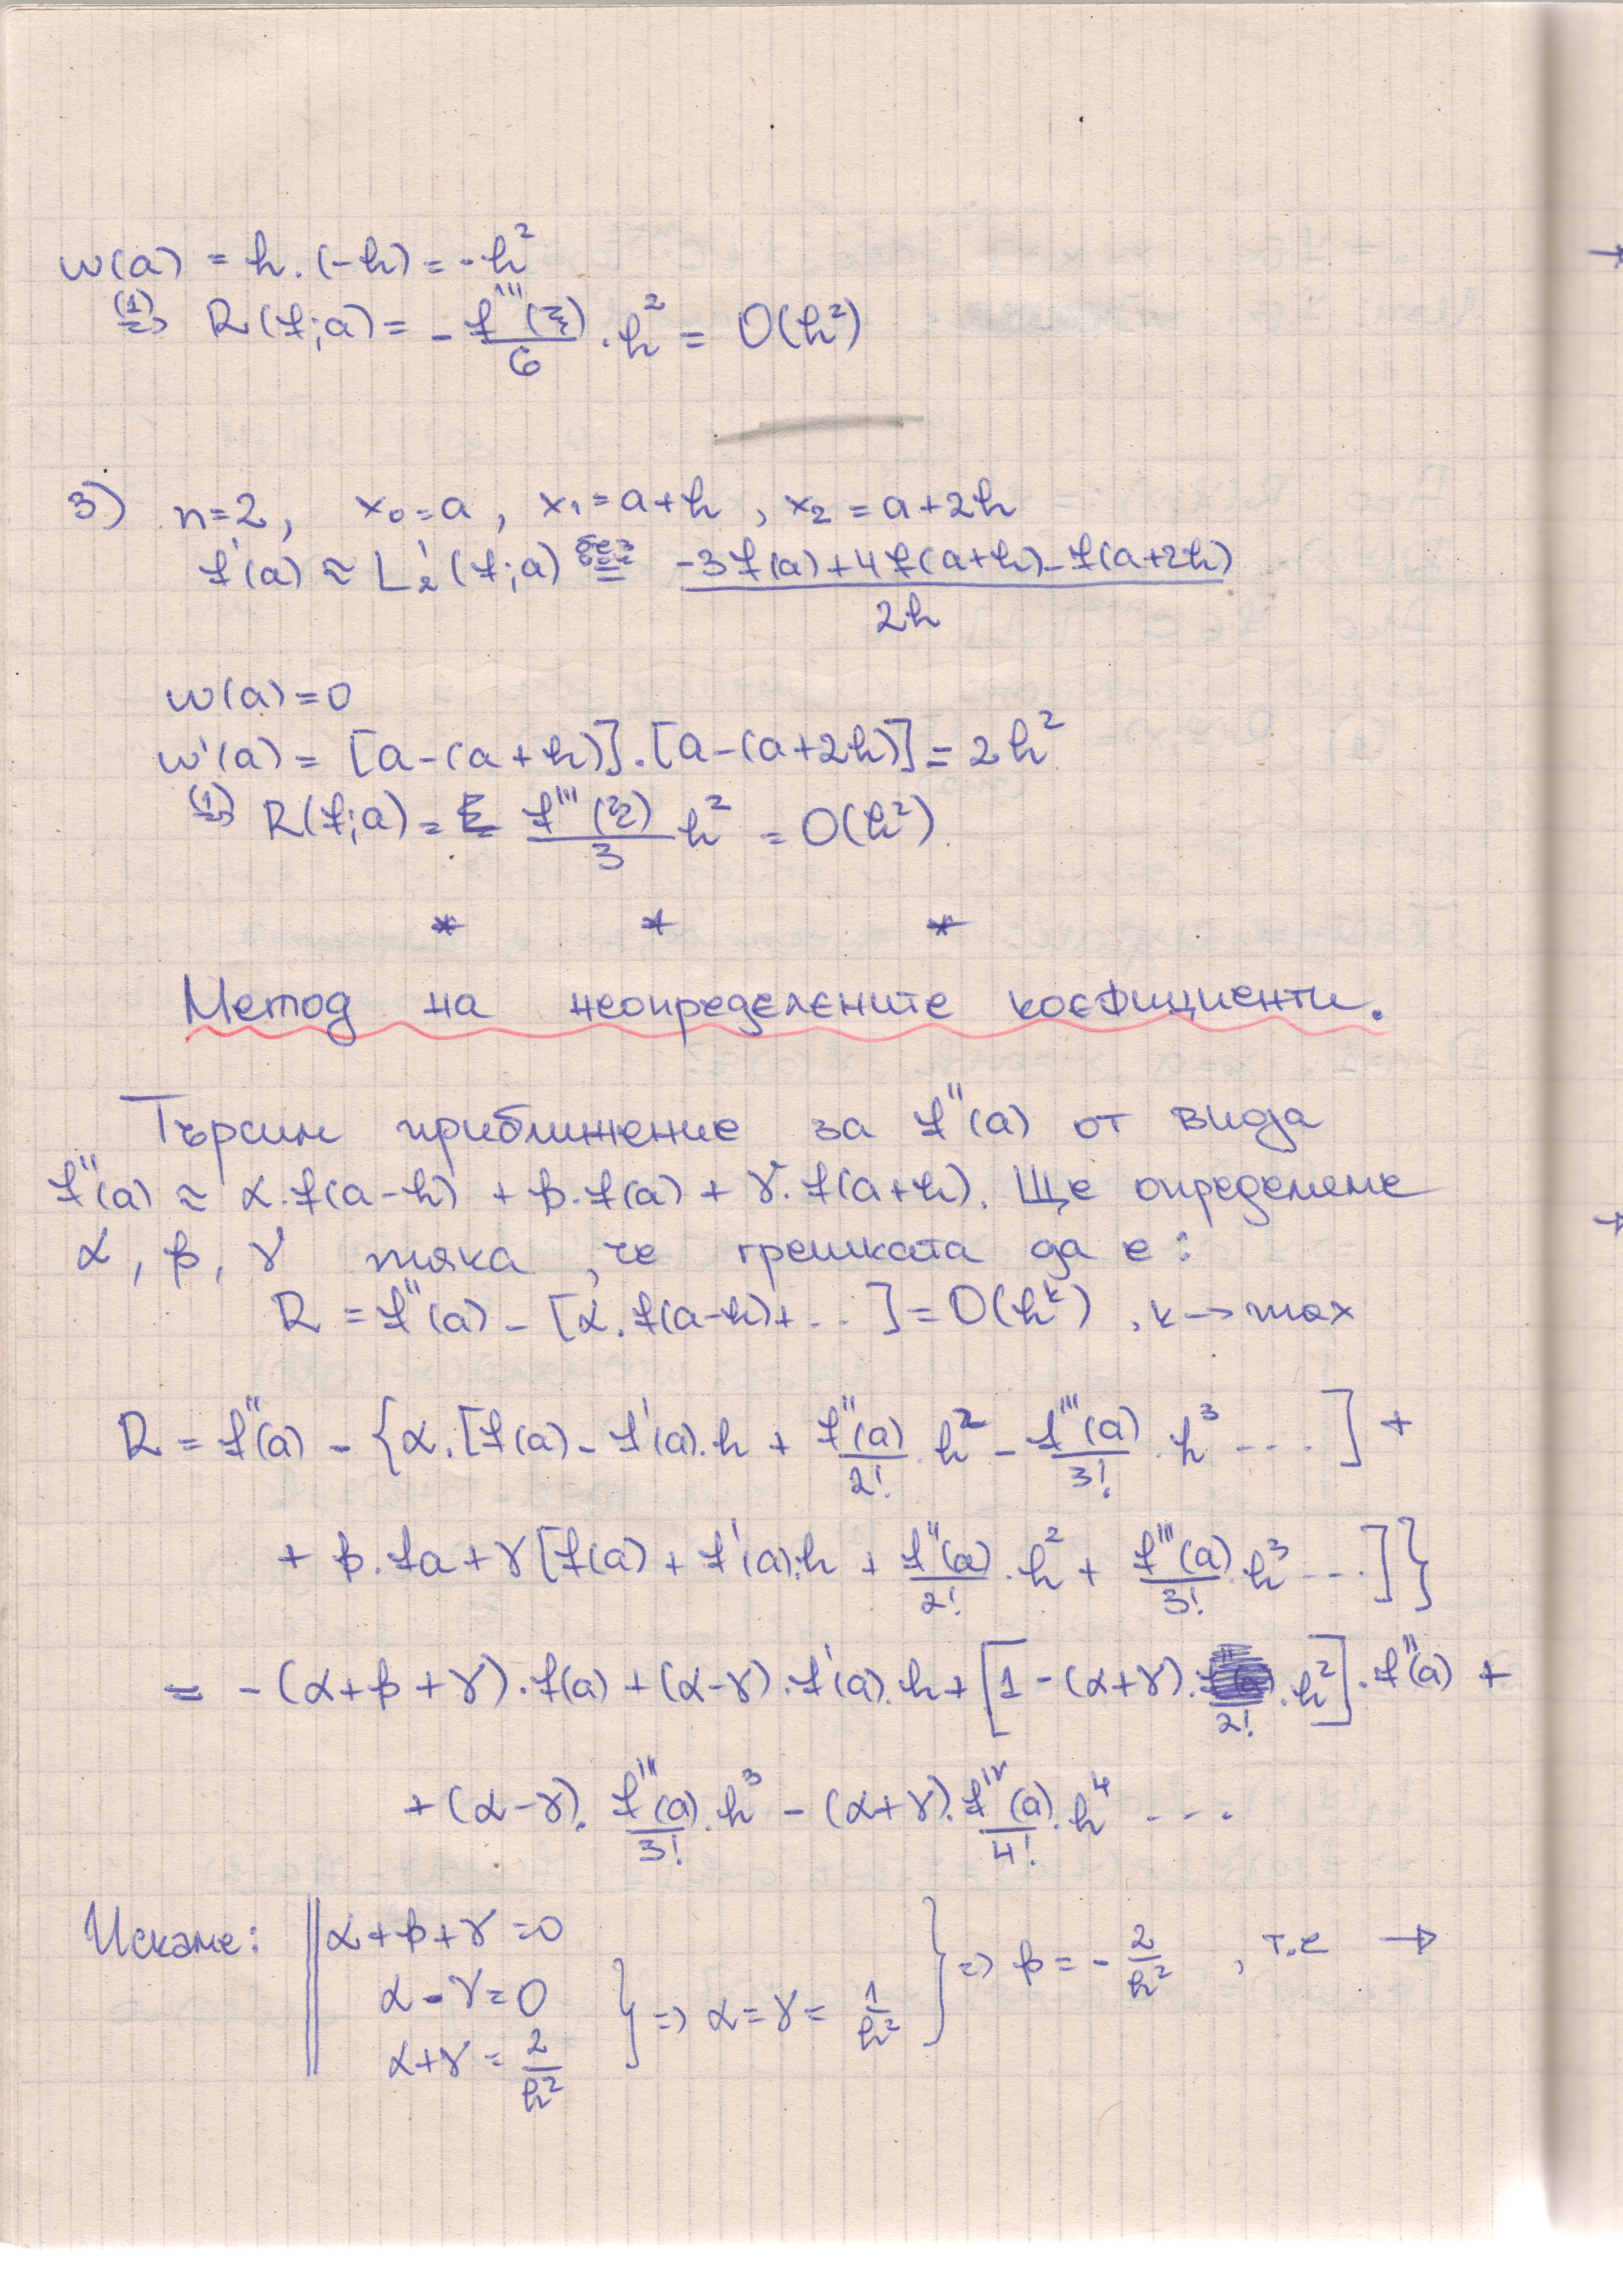 ω(a) = h.(-h) = -h²
(1)=> R(f;a) = - f'''(ξ)/6 . h² = O(h²)
3) n=2, x₀=a, x₁=a+h, x₂=a+2h
f'(a) ≈ L₂'(f;a) = (-3f(a)+4f(a+h)-f(a+2h))/2h
ω(a)=0
ω'(a) = [a-(a+h)].[a-(a+2h)] = 2h²
(1)=> R(f;a) = f'''(ξ)/3 h² = O(h²)
* * *
Метод на неопределените коефициенти.
Търсим приближение за f''(a) от вида
f''(a) ≈ α.f(a-h) + β.f(a) + γ.f(a+h). Ще определяме
α, β, γ така, че грешката да е:
R = f''(a) - [α.f(a-h)+...] = O(hᵏ), k→max
R = f''(a) - {α.[f(a) - f'(a).h + f''(a)/2! . h² - f'''(a)/3! . h³ ....] +
+ β.fa + γ[f(a) + f'(a).h + f''(a)/2! . h² + f'''(a)/3! . h³ ....]}
= -(α+β+γ).f(a) + (α-γ).f'(a).h + [1 - (α+γ). /2! . h²].f''(a) +
+(α-γ). f'''(a)/3! . h³ - (α+γ). f^IV(a)/4! . h⁴ ....
Искаме: || α+β+γ=0
α-γ=0 } => α=γ= 1/h² } => β = - 2/h² , т.е →
α+γ = 2/h²